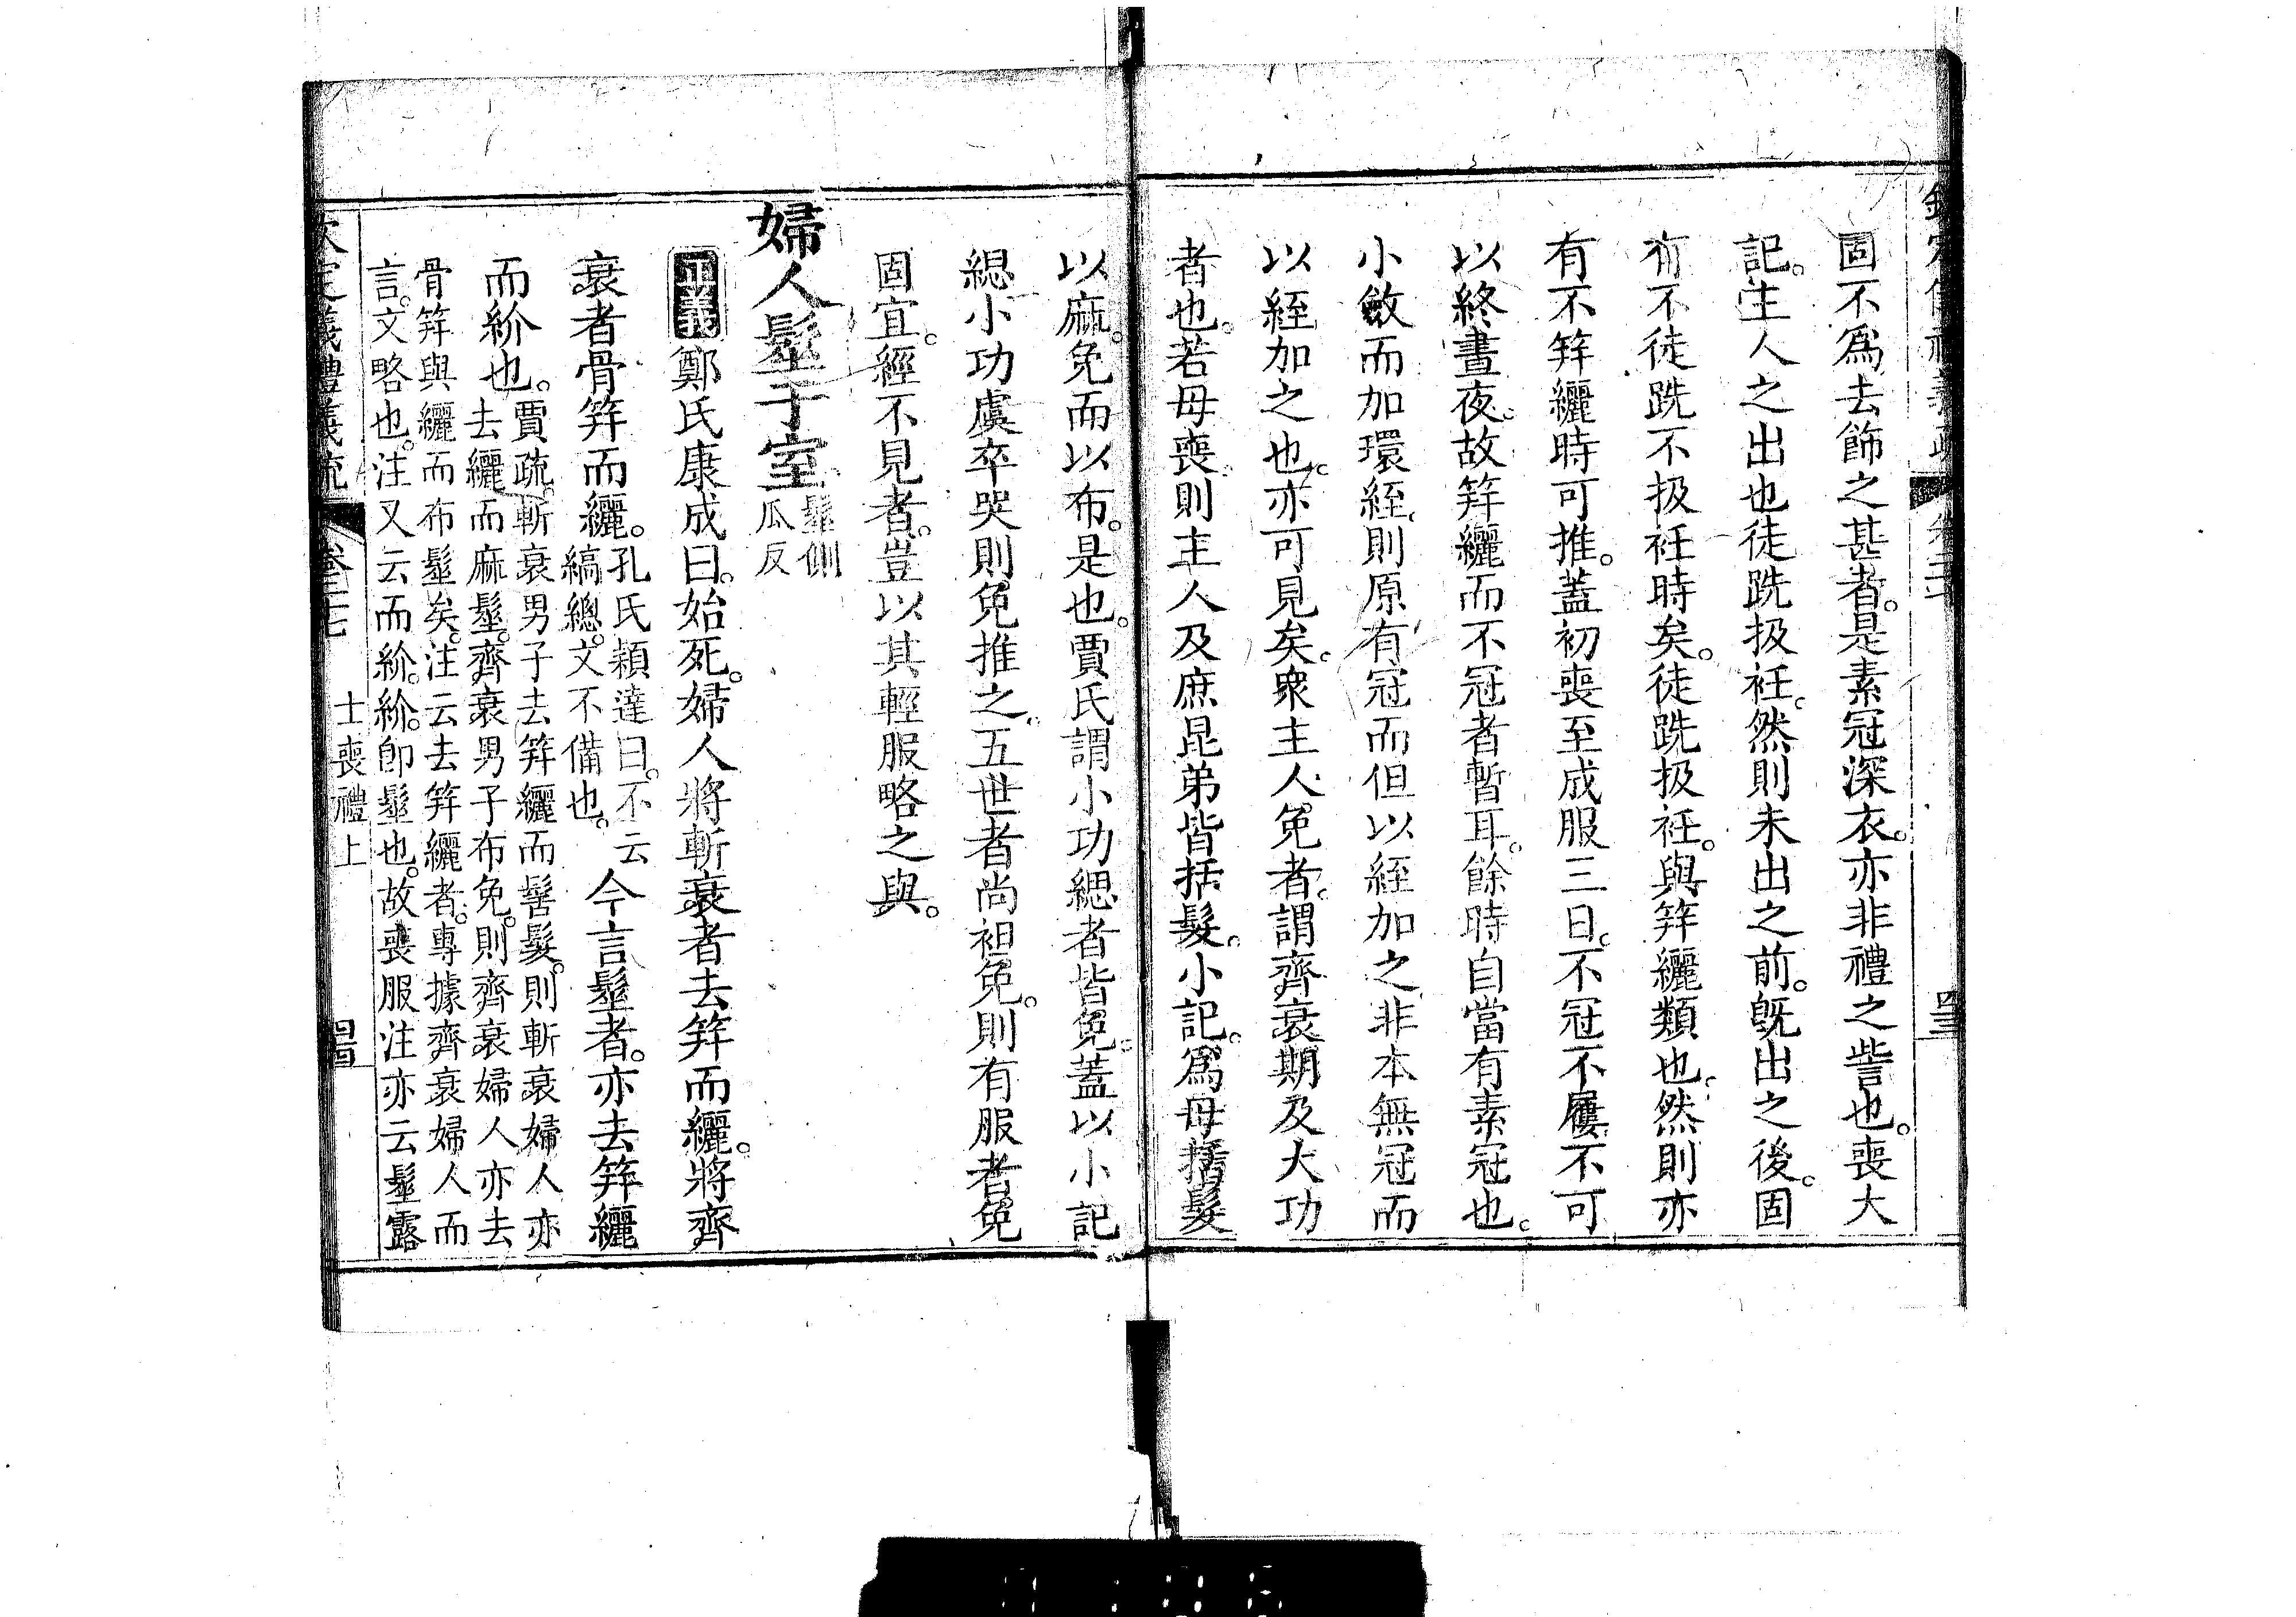 固不爲去飾之甚者。是素冠深衣。亦非禮之訾也。喪大
記。主人之出也徒跣扱衽。然則未出之前。旣出之後。固
有不徒跣不扱衽時矣。徒跣扱衽。與笄纚類也。然則亦
有不笄纚時可推。蓋初喪至成服三日。不冠不屨。不可
以終晝夜。故笄纚而不冠者暫耳。餘時自當有素冠也。
小斂而加環絰。則原有冠而但以絰加之非本無冠而
以絰加之也。亦可見矣。衆主人。免者。謂齊衰期及大功
者也。若母喪。則主人及庶昆弟皆括髮。小記。爲母括髮
以麻。免而以布。是也。賈氏謂小功緦者皆免。蓋以小記
緦小功虞卒哭則免推之。五世者尚袒免。則有服者免
固宜。經不見者。豈以其輕服略之與。
婦人髽于室髽側
瓜反
正義鄭氏康成曰。始死。婦人將斬衰者去笄而纚。將齊
衰者骨笄而纚。孔氏穎達曰。不云
縞總。文不備也。今言髽者。亦去笄纚
而紒也。賈疏。斬衰男子去笄纚而髻髮。則斬衰婦人亦
去纚而麻髽。齊衰男子布免。則齊衰婦人亦去
骨笄與纚而布髽矣。注云去笄纚者。專據齊衰婦人而
言。文略也。注又云而紒。紒。卽髽也。故喪服注亦云髽露
義禮義疏
士喪禮上